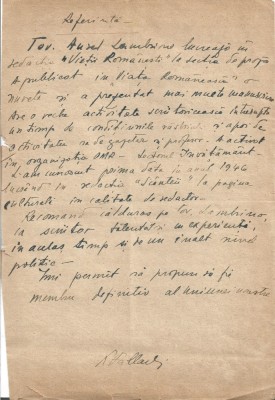 Referință
Tov. Aurel Lambrino lucrează în
redacția "Vieții Românești" la secția de proză
A publicat în Viața Românească o
nuvelă și a prezentat mai multe
Are o activitate scriitoricească
un timp de condițiunile și apoi de
activitatea de și profesor. A activat
în organizația Învățământ
L-am cunoscut prima dată în anul 1946
lucrând în redacția "Scânteii" la pagina
culturală în calitate de redactor.
Recomand călduros pe tov. Lambrino,
ca scriitor talentat și cu experiență,
în același timp și de un înalt nivel
politic –
Îmi permit să propun să fie
membru definitiv al Uniunii noastre